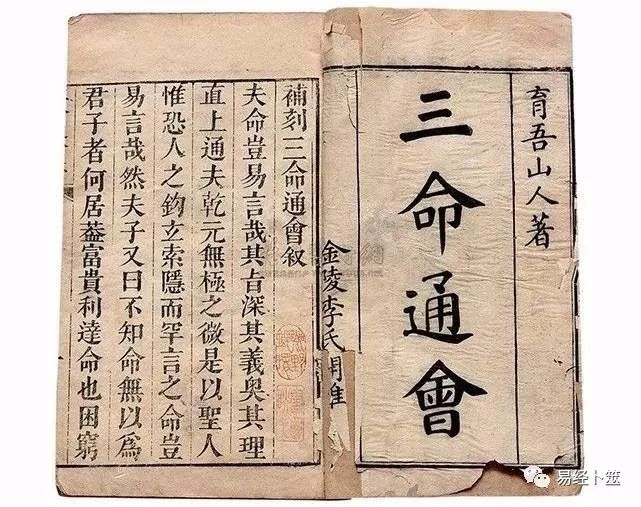 育吾山人著
三命通會
金陵李氏
補刻三命通會叙
夫命豈易言哉其旨深其義奥其理
直上通夫乾元無極之微是以聖人
惟恐人之鈎玄索隱而罕言之命豈
易言哉然夫子又曰不知命無以爲
君子者何居葢富貴利達命也困窮
易经卜筮